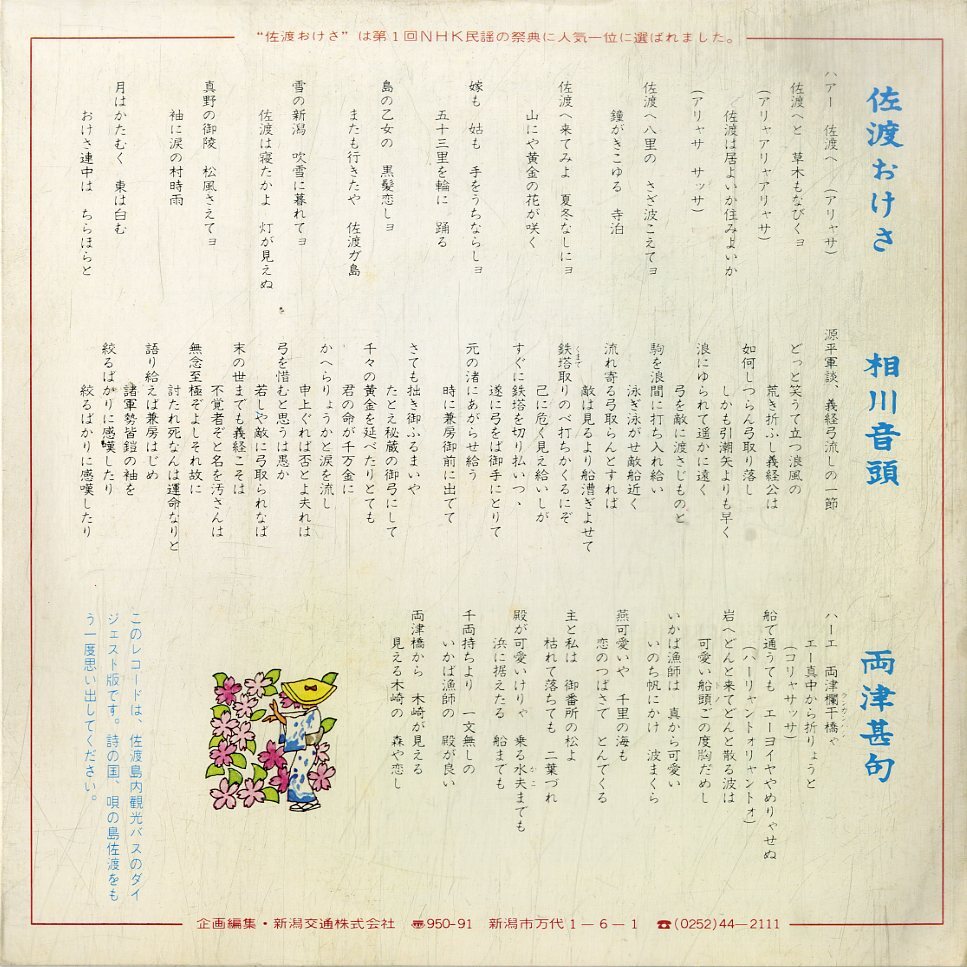 “佐渡おけさ”は第1回NHK民謡の祭典に人気一位に選ばれました。
佐渡おけさ
ハアー　佐渡へ　(アリャサ)
佐渡へと　草木もなびくヨ
(アリャアリャアリャサ)
佐渡は居よいか住みよいか
(アリャサ　サッサ)
佐渡へ八里の　さざ波こえてヨ
鐘がきこゆる　寺泊
佐渡へ来てみよ　夏冬なしにヨ
山にや黄金の花が咲く
嫁も　姑も　手をうちならしヨ
五十三里を輪に　踊る
島の乙女の　黒髪恋しヨ
またも行きたや　佐渡が島
雪の新潟　吹雪に暮れてヨ
佐渡は寝たかよ　灯が見えぬ
真野の御陵　松風さえてヨ
袖に涙の村時雨
月はかたむく　東は白む
おけさ連中は　ちらほらと
相川音頭
源平軍談、義経弓流しの一節
どっと笑うて立つ浪風の
荒き折ふし義経公は
如何しつらん弓取り落し
しかも引潮矢よりも早く
浪にゆられて遥かに遠く
弓を敵に渡さじものと
駒を浪間に打ち入れ給い
泳ぎ泳がせ敵船近く
流れ寄る弓取らんとすれば
敵は見るより船漕ぎよせて
鉄塔取りのべ打ちかくるにぞ
己に危く見え給いしが
すぐに鉄塔を切り払いつゝ
遂に弓をば御手にとりて
元の渚にあがらせ給う
時に兼房御前に出でて
さても拙き御ふるまいや
たとえ秘蔵の御弓にして
千々の黄金を延べたりとても
君の命が千万金に
かへらりょうかと涙を流し
申上ぐれば否とよ夫れは
弓を惜むと思うは愚か
若しや敵に弓取られなば
末の世までも義経こそは
不覚者ぞと名を汚さんは
無念至極ぞよしそれ故に
討たれ死なんは運命なりと
語り給えば兼房はじめ
諸軍勢皆鎧の袖を
絞るばかりに感嘆したり
絞るばかりに感嘆したり
両津甚句
ハーエ　両津欄干橋ゃ
エー真中から折りょうと
(コリャサッサ)
船で通うても　エーヨイヤやめりゃせぬ
(ハーリャントオリャントオ)
岩へどんと来てどんと散る波は
可愛い船頭ごの度胸だめし
いかば漁師は　真から可愛い
いのち帆にかけ　波まくら
燕可愛いや　千里の海も
恋のつばさで　とんでくる
主と私は　御番所の松よ
枯れて落ちても　二葉づれ
殿が可愛いけりゃ　乗る水夫までも
浜に据えたる　船までも
千両持ちより　一文無しの
いかば漁師の　殿が良い
両津橋から　木崎が見える
見える木崎の　森や恋し
このレコードは、佐渡島内観光バスのダイ
ジェスト版です。詩の国、唄の島佐渡をも
う一度思い出してください。
企画編集・新潟交通株式会社　〠950-91　新潟市万代1－6－1　☎(0252)44－2111